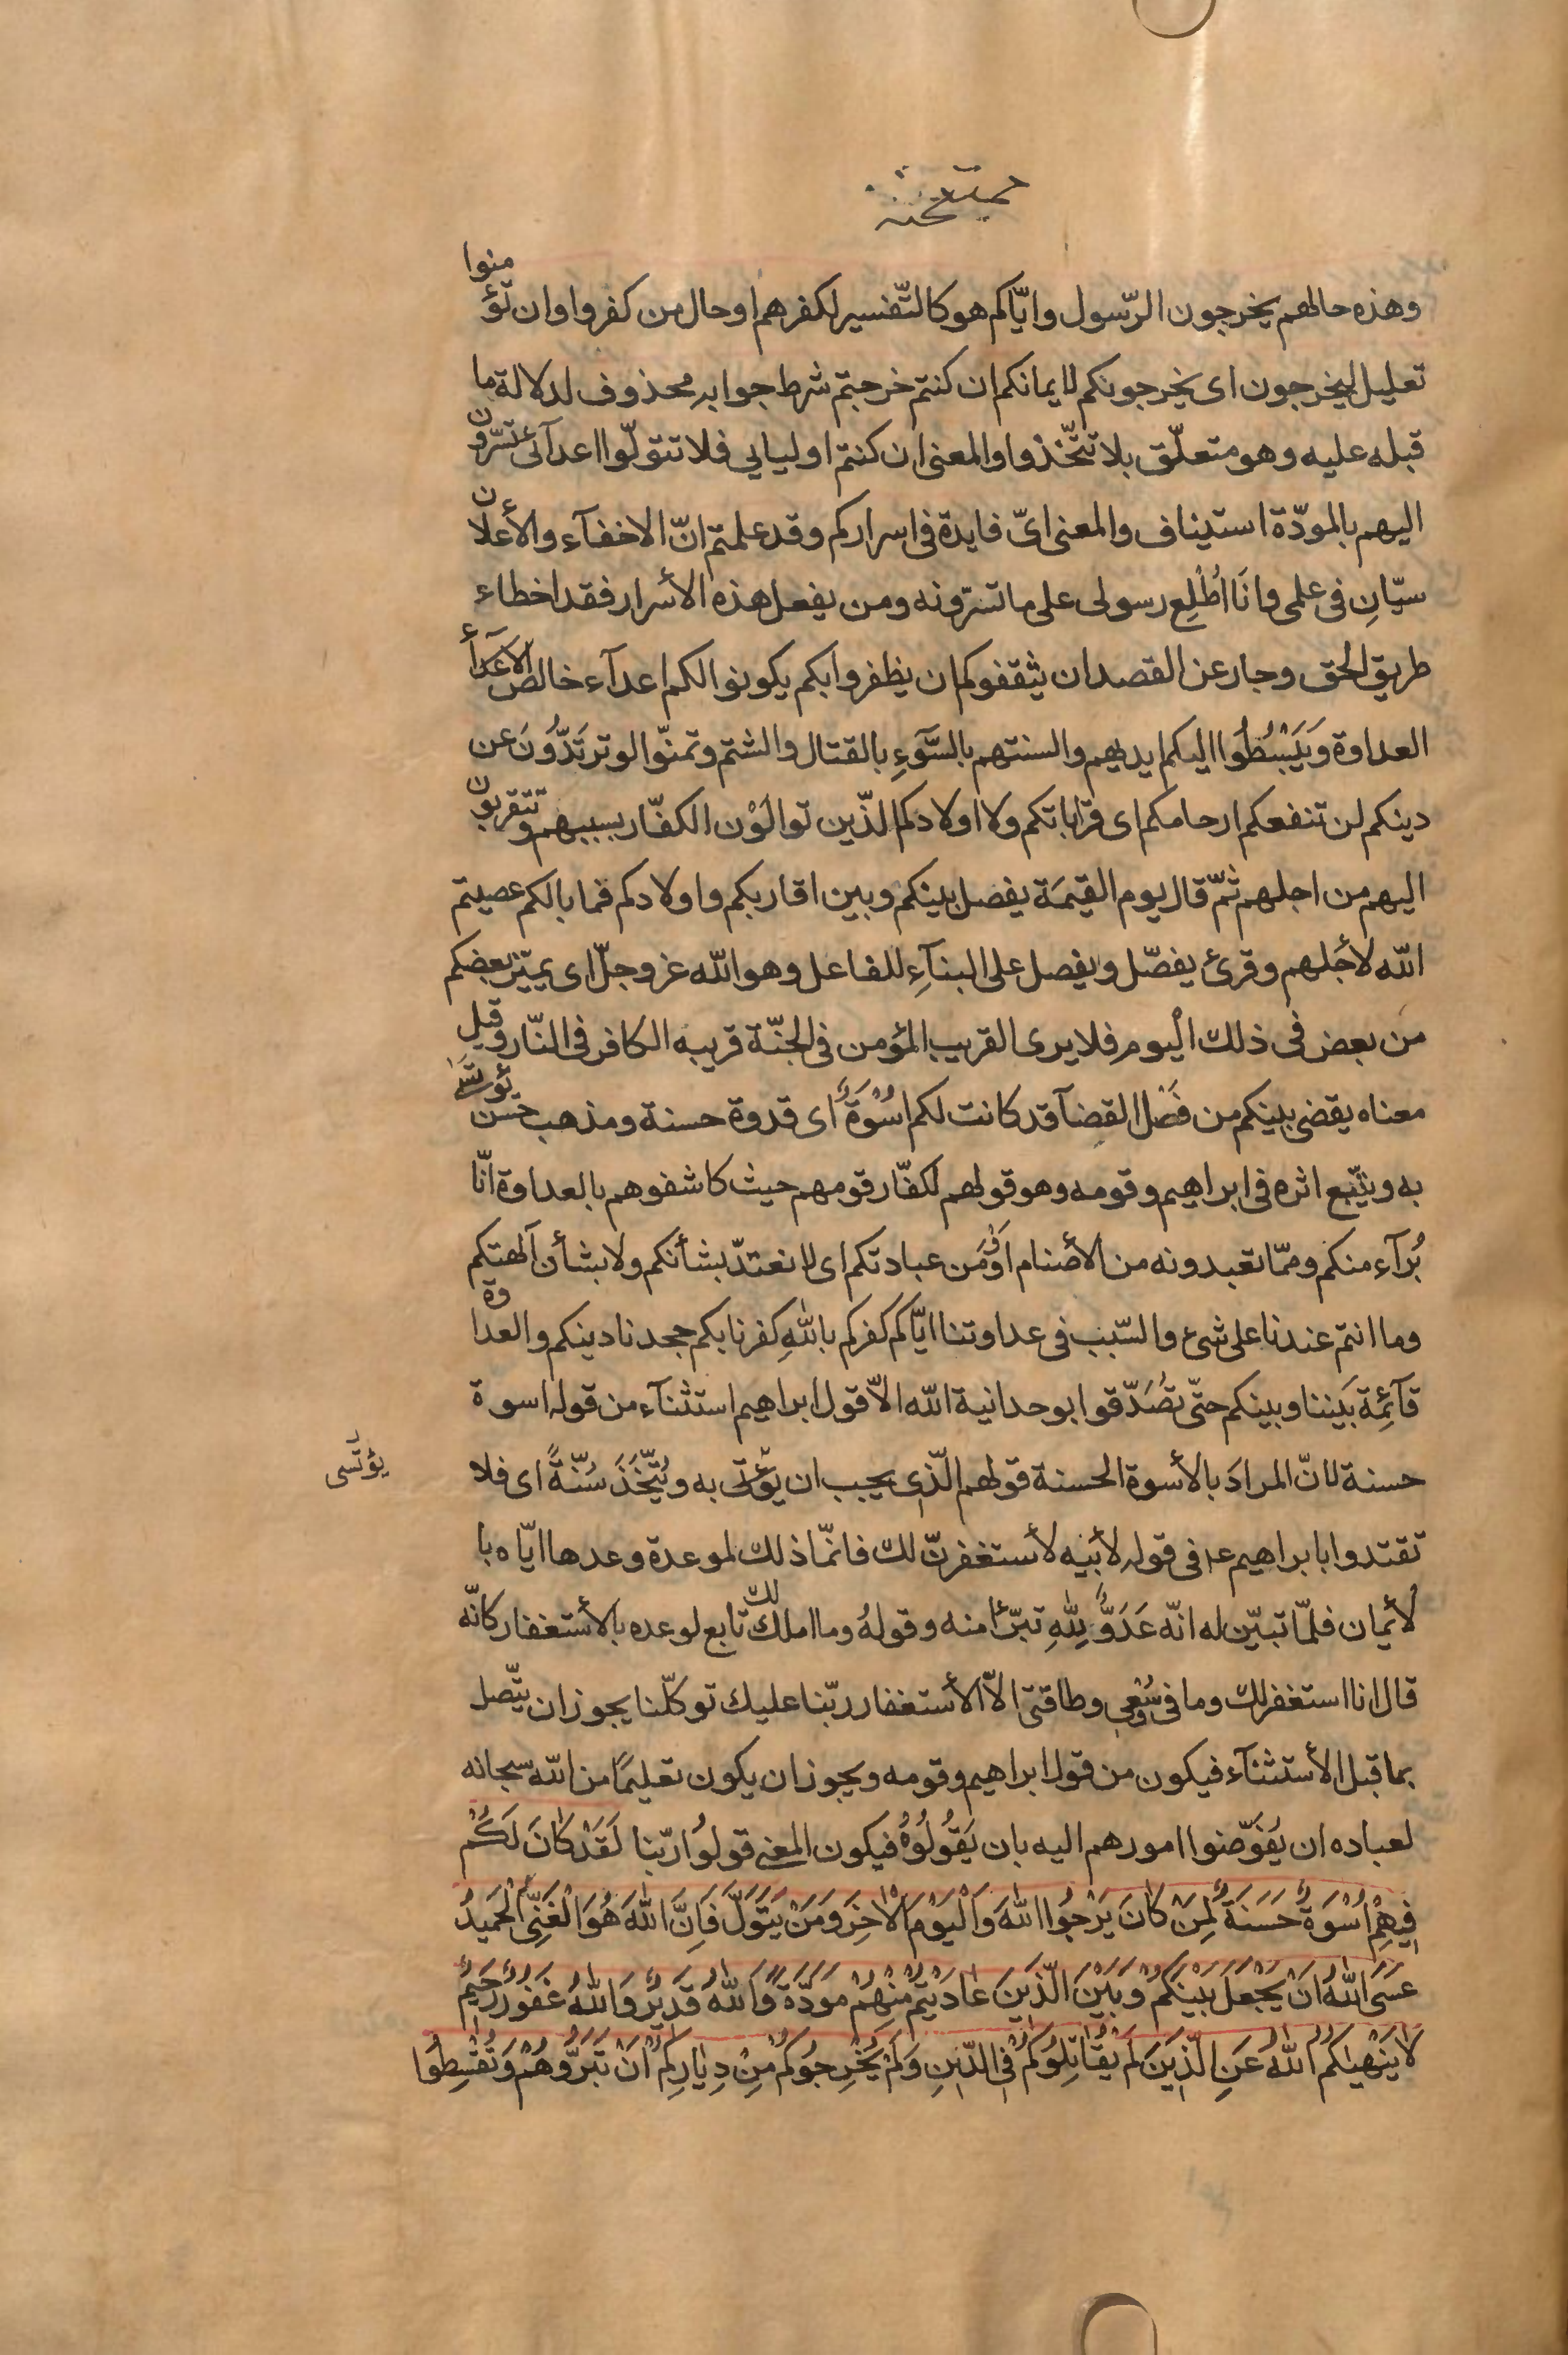 ممتحنه
وهذه حالهم يخرجون الرّسول وايّاكم هو كالتّفسير لكفرهم او حال من كفروا وان تؤمنوا
تعليل ليخرجون اى يخرجونكم لايمانكم ان كنتم خرجتم شرط جوابه محذوف لدلالة ما
قبله عليه وهو متعلّق بلا تتّخذوا والمعنى ان كنتم اوليايي فلا تتولّوا اعدآئى تسرّون
اليهم بالمودّة استيناف والمعنى اىّ فايدة فى اسراركم وقد علمتم انّ الاخفآء والأعلان
سيّانِ فى علمى وانَا اُطْلِع رسولى على ما تسرّونه ومن يفعل هذه الأسرار فقد اخطاء
طريق الحق وجار عن القصد ان يثقفوكم ان يظفروا بكم يكونوا لكم اعدآء خالص الأعدآء
العداوة وَيَبْسُطُوا اليكم ايديهم والسنتهم بالسَّوءِ بالقتال والشتم وتمنّوا لو ترتَدُّونَ عن
دينكم لن تنفعكم ارحامكم اى قراباتكم ولا اولادكم الّذين توالَوْن الكفّار بسببهم وتتقربون
اليهم من اجلهم ثمّ قال يوم القيمَة يفصل بينكم وبين اقاربكم واولادكم فما بالكم عصيتم
الله لأجلهم وقرئ يفصّل ويفصل على البنآءِ للفاعل وهو الله عز وجلّ اى يميّز بعضكم
من بعض فى ذلك اليوم فلا يرى القريب المؤمن فى الجنّة قريبه الكافر فى النّار وقيل
معناه يقضى بينكم من فَصْل القضآ قد كانت لكم اسُوْةٌ اى قدوة حسنة ومذهب حسن يؤتسى
به ويتّبع اثره فى ابراهيم وقومه وهو قولهم لكفّار قومهم حيث كاشفوهم بالعداوة انّا
بُرآء منكم وممّا تعبدونه من الأصنام اَوْ مَن عبادتكم اى لا نعتدّ بشأنكم ولا بشأن آلهتكم
وما انتم عندنا على شىء والسّبب فى عداوتنا ايّاكم كفركم باللهِ كفرنا بكم جحدنا دينكم والعداوة
قآئِمة بَيننا وبينكم حتّى تصُدّقوا بوحدانية الله الاّ قول ابراهيم استثنآء من قوله اسوة
حسنة لانّ المرادَ بالأسوة الحسنة قولهم الّذى يجب ان يؤتى به ويُتّخَذَ سُنّةً اى فلا
يؤتسّى
تقتدوا بابراهيم ع فى قوله لأبيه لأستغفرنّ لك فانمّا ذلك لموعدة وعدها ايّاه با
لأيمان فلمّا تبيّن له انّه عَدَوٌّ لِلّهِ تبرّأ منه وقولهُ وما املك لك تابع لوعده بالأستغفار كانّه
قال انا استغفر لك وما فى وُسْعِى وطاقتى الاّ الأستغفار ربّنا عليك توكّلنا يجوز ان يتّصل
بما قبل الأستثنآء فيكون من قول ابراهيم وقومه ويجوز ان يكون تعليمًا من الله سبحانه
لعباده ان يُفَوّضوا امورهم اليه بان يَقُولُوُهُ فيكون المعنى قولوُا ربّنا لَقَدْ كَانَ لَكُمْ
فِيهِمْ اُسْوَةٌ حَسَنَةٌ لِمَنْ كَانَ يَرْجُوا اللهَ وَالْيَوْمَ الاٰخِرَ وَمَنْ يَتَوَلَّ فَاِنَّ اللهَ هُوَ الْغَنِىُّ الْحَمِيدُ
عَسَى اللهُ اَنْ يَجْعَلَ بَيْنَكُمْ وَبَيْنَ الَّذِينَ عَادَيْتُمْ مِنْهُمْ مَوَدَّةً وَاللهُ قَدِيرٌ وَاللهُ غَفُورٌ رَحِيمٌ
لاَ يَنْهٰيكُمُ اللهُ عَنِ الَّذِينَ لَمْ يُقَاتِلُوكُمْ فِى الدِّينِ وَلَمْ يُخْرِجُوكُمْ مِنْ دِيَارِكُمْ اَنْ تَبَرُّوهُمْ وَتُقْسِطُوا